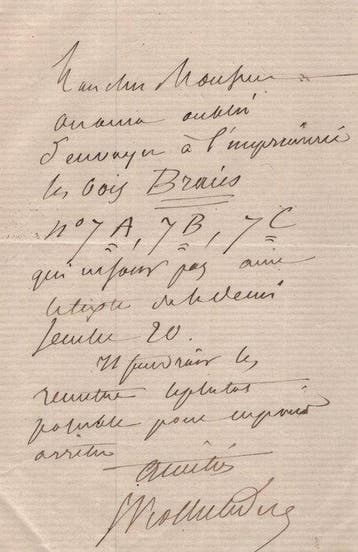 Mon cher Monsieur
on aura oublié
d'envoyer à l'imprimerie
les bois Braies
nº 7 A, 7 B, 7 C
qui ne sont pas avec
le texte de la demi
feuille 20.
Il faudrait les
remettre le plutot
possible pour
arrêter
Amitiés
Viollet le Duc